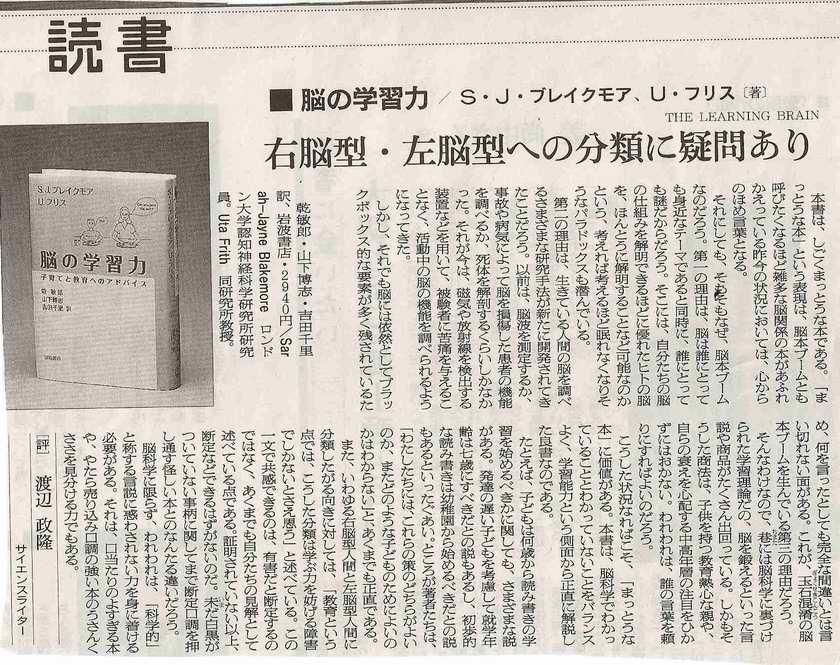 読書
■脳の学習力／S・J・ブレイクモア、U・フリス［著］
THE LEARNING BRAIN
右脳型・左脳型への分類に疑問あり
本書は、しごくまっとうな本である。「ま
っとうな本」という表現は、脳本ブームとも
呼びたくなるほど雑多な脳関係の本があふれ
かえっている昨今の状況においては、心から
のほめ言葉となる。
それにしても、そもそもなぜ、脳本ブーム
なのだろう。第一の理由は、脳は誰にとって
も身近なテーマであると同時に、誰にとって
も謎だからだろう。そこには、自分たちの脳
の仕組みを解明できるほどに優れたヒトの脳
を、ほんとうに解明することなど可能なのか
という、考えれば考えるほど眠れなくなりそ
うなパラドックスも潜んでいる。
第二の理由は、生きている人間の脳を調べ
るさまざまな研究手法が新たに開発されてき
たことだろう。以前は、脳波を測定するか、
事故や病気によって脳を損傷した患者の機能
を調べるか、死体を解剖するくらいしかなか
った。それが今は、磁気や放射線を検出する
装置などを用いて、被験者に苦痛を与えるこ
となく、活動中の脳の機能を調べられるよう
になってきた。
しかし、それでも脳には依然としてブラッ
クボックス的な要素が多く残されているた
乾敏郎・山下博志・吉田千里
訳、岩波書店・2940円／Sar
ah-Jayne Blakemore ロンド
ン大学認知神経科学研究所研究
員。Uta Frith 同研究所教授。
S.J.ブレイクモア
U.フリス
脳の学習力
子育てと教育へのアドバイス
乾 敏郎
山下博志
吉田千里 訳
岩波書店
め、何を言ったとしても完全な間違いとは言
い切れない面がある。これが、玉石混淆の脳
本ブームを生んでいる第三の理由だろう。
そんなわけなので、巷には脳科学に裏づけ
られた学習理論だの、脳を鍛えるといった言
説や商品がたくさん出回っている。しかもそ
うした商法は、子供を持つ教育熱心な親や、
自らの衰えを心配する中高年層の注目をひか
ずにはおかない。われわれは、誰の言葉を頼
りにすればよいのだろう。
こうした状況なればこそ、「まっとうな
本」に価値がある。本書は、脳科学でわかっ
ていることとわかっていないことをバランス
よく、学習能力という側面から正直に解説し
た良書なのである。
たとえば、子どもは何歳から読み書きの学
習を始めるべきかに関しても、さまざまな説
がある。発達の遅い子どもを考慮して就学年
齢は七歳にすべきだとの説もあるし、初歩的
な読み書きは幼稚園から始めるべきだとの説
もあるといったぐあい。ところが著者たちは、
「わたしたちには、これらの策のどちらがよい
のか、またどのような子どものためによいの
かはわからない」と、あくまでも正直である。
また、いわゆる右脳型人間と左脳型人間に
分類したがる向きに対しては、「教育という
点では、こうした分類は学ぶ力を妨げる障害
でしかないとさえ思う」と述べている。この
一文で共感できるのは、有害だと断定するの
ではなく、あくまでも自分たちの見解として
述べている点である。証明されていない以上、
断定などできるはずがないのだ。未だ白黒が
ついていない事柄に関してまで断定口調を押
し通す怪しい本とのなんたる違いだろう。
脳科学に限らず、われわれは、「科学的」
と称する言説に惑わされない力を身に着ける
必要がある。それは、口当たりのよすぎる本
や、やたら売り込み口調の強い本のうさんく
ささを見分ける力でもある。
［評］渡辺 政隆
サイエンスライター